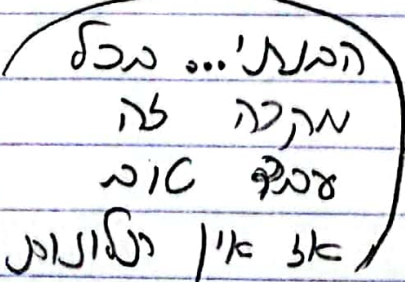 הבנתי... בכל
מקרה זה
עבד טוב
אז אין תלונות